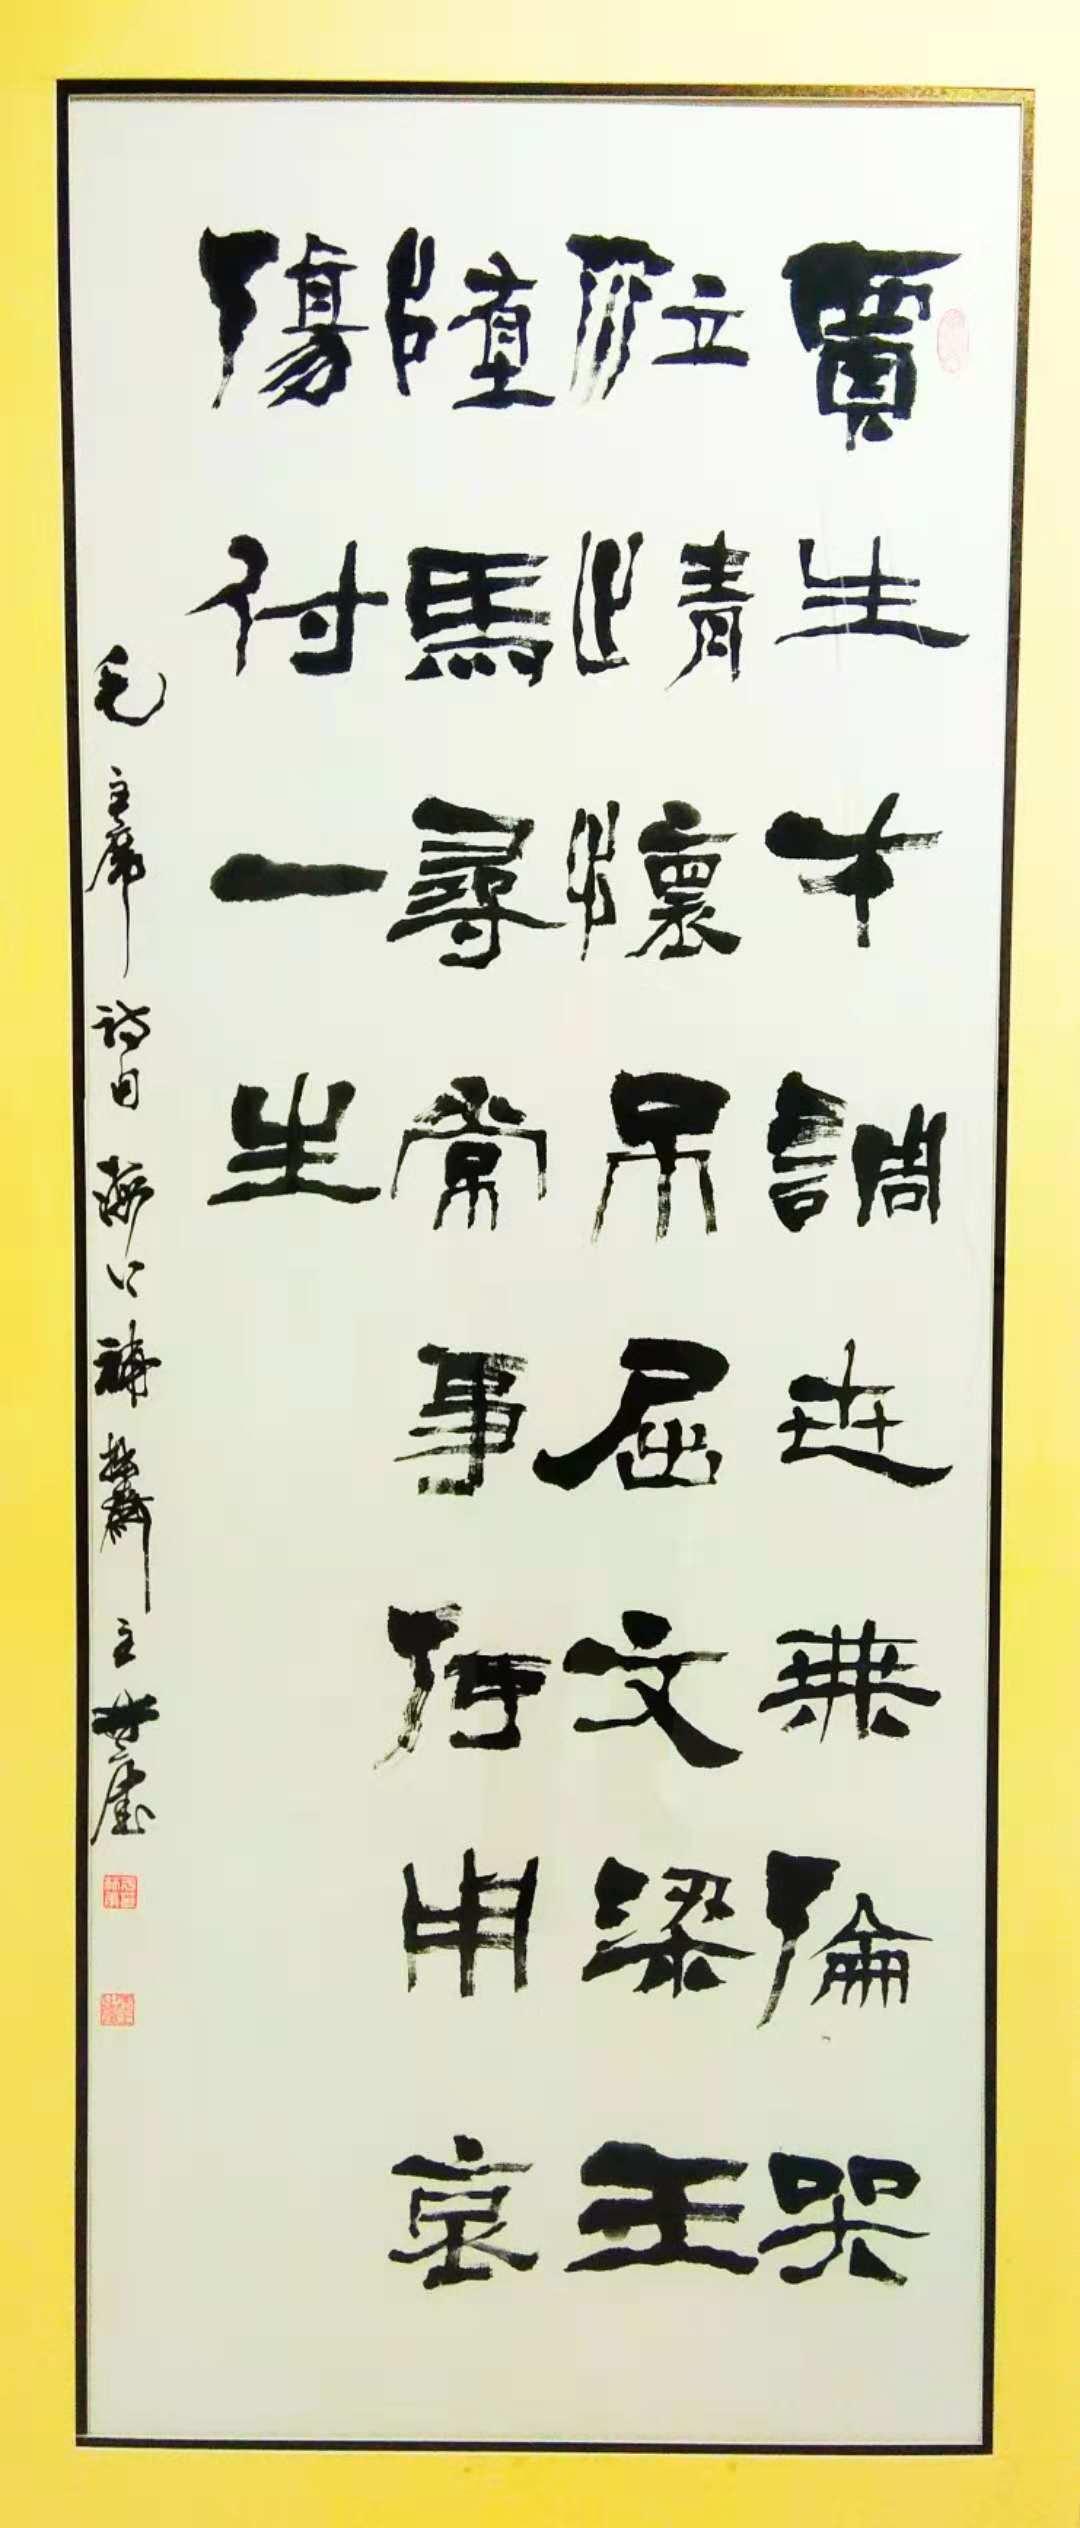 賈生才調世無倫哭
泣情懷吊屈文梁王
墮馬尋常事何用哀
傷付一生
毛主席詩
主